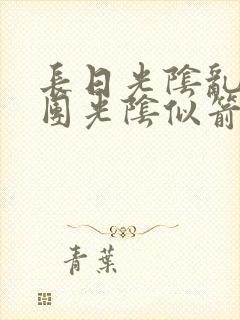 長日光陰亂
團光陰似箭
青葉